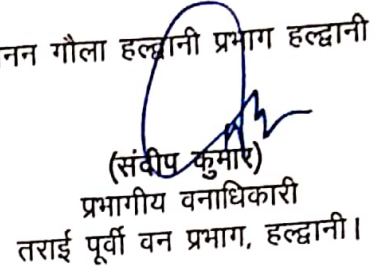 गौला हल्द्वानी प्रभाग हल्द्वानी
(संदीप कुमार)
प्रभागीय वनाधिकारी
तराई पूर्वी वन प्रभाग, हल्द्वानी।